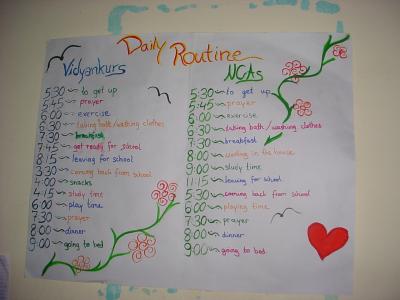 Daily Routine
Vidyankurs
5:30 to get up
5:45 prayer
6:00 exercise
6:30 taking bath/washing clothes
7:30 breakfast
7:45 get ready for school
8:15 leaving for school
3:30 coming back from school
4:00 snacks
4:15 study time
6:00 play time
7:30 prayer
8:00 dinner
9:00 going to bed
NCAs
5:30 to get up
5:45 prayer
6:00 exercise
6:30 taking bath/washing clothes
7:30 breakfast
8:00 working in the house
9:00 study time
11:15 leaving for school
5:30 coming back from school
6:00 playing time
7:30 prayer
8:00 dinner
9:00 going to bed